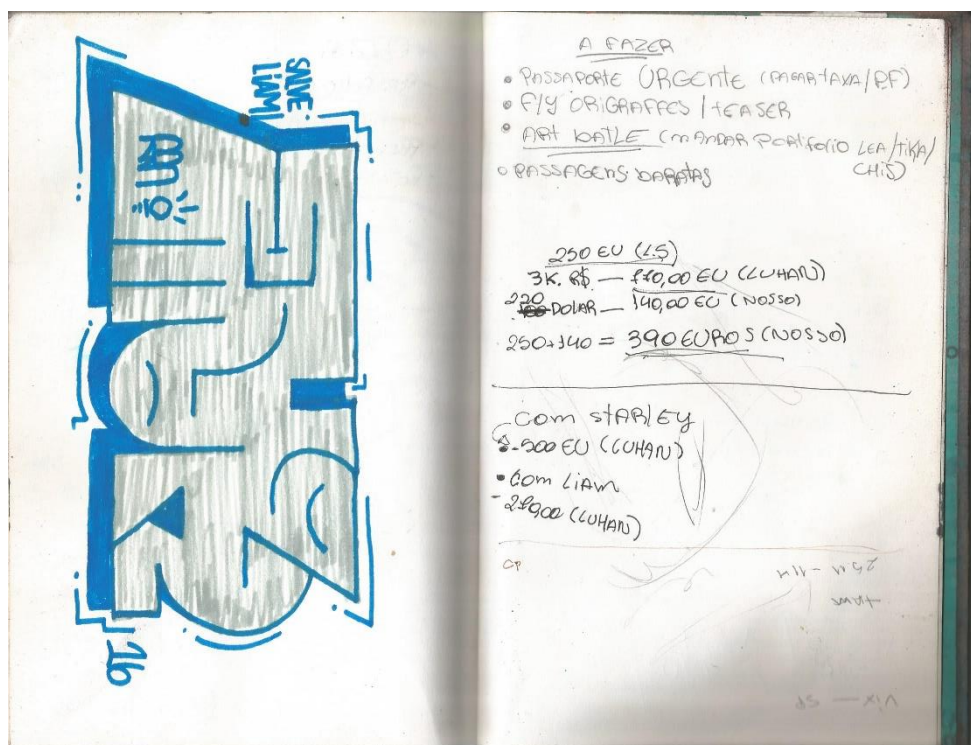 SALVE
LIAM!
16
A FAZER
• PASSAPORTE URGENTE (PAGAR TAXA/P.F)
• F/Y ORIGRAFFES / TEASER
• ART BATLE (MANDAR PORTIFOLIO LEA/TIKA/
CHIS)
• PASSAGENS BARATAS
250 EU (L.S)
3K. R$ — 770,00 EU (LUHAN)
220 DOLAR — 140,00 EU (NOSSO)
250+140 = 390 EUROS (NOSSO)
COM STARLEY
-500 EU (LUHAN)
• COM LIAM
- 270,00 (LUHAN)
VIX — SP